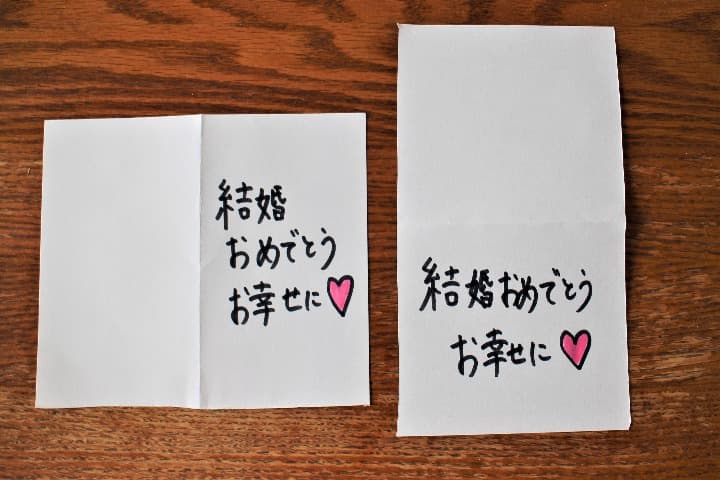 結婚
おめでとう
お幸せに♥
結婚おめでとう
お幸せに♥